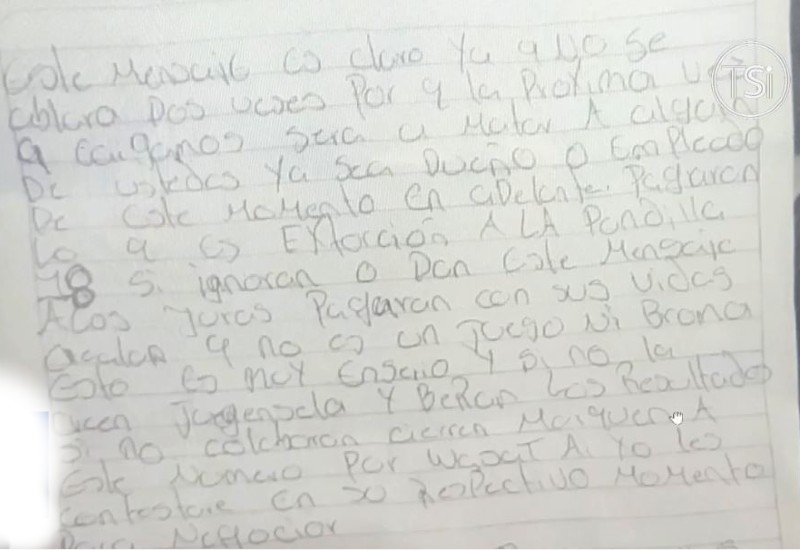 Este Mensaje es claro Ya q No se
ablara Dos veses Por q la Proxima
q caigamos sera a Matar A alguien
De ustedes Ya sea Dueño o Empleado
De este Momento en aDelante. Pagaran
Lo q es EXtorción A LA Pandilla
18 Si ignoran o Dan este Mensaje
ALos Juras Pagaran con sus vidas
q no es un Juego Ni Broma
Esto es muy Enserio Y si no la
Creen Juegensela Y BeRan Los Resultados
Si no Marquen A
Este Numero Por WasaT A. Yo les
contestare en so Respectivo Momento
Para Negosiar
TSi